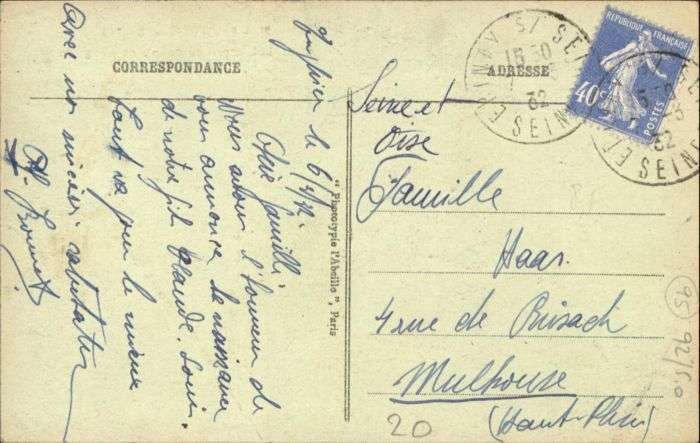 CORRESPONDANCE
Épinay le 6/3/32
Chère famille,
Nous avons l'honneur de
vous annoncer la naissance
de notre fils Claude-Louis.
Tout va pour le mieux
Avec nos sincères salutations
"Phototypie l'Abeille", Paris
ADRESSE
EPINAY S/ SEINE
32
SEINE
REPUBLIQUE FRANÇAISE
40c
POSTES
Seine et
Oise
Famille
Haas
4 rue de Brisach
Mulhouse
(Haut-Rhin)
20
95
92/50